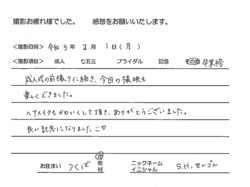 撮影お疲れ様でした。 感想をお願いいたします。
<撮影日時> 令和3年2月1日(月)
<撮影項目> 成人 七五三 ブライダル 記念 その他 卒業袴
成人式の前撮りに続き、今回の撮影も
楽しくできました。
ヘアメイクもかわいくして頂き、ありがとうございました。
良い記念になりました♡
お住まい つくば 市 町 村 ニックネーム イニシャル S.H.